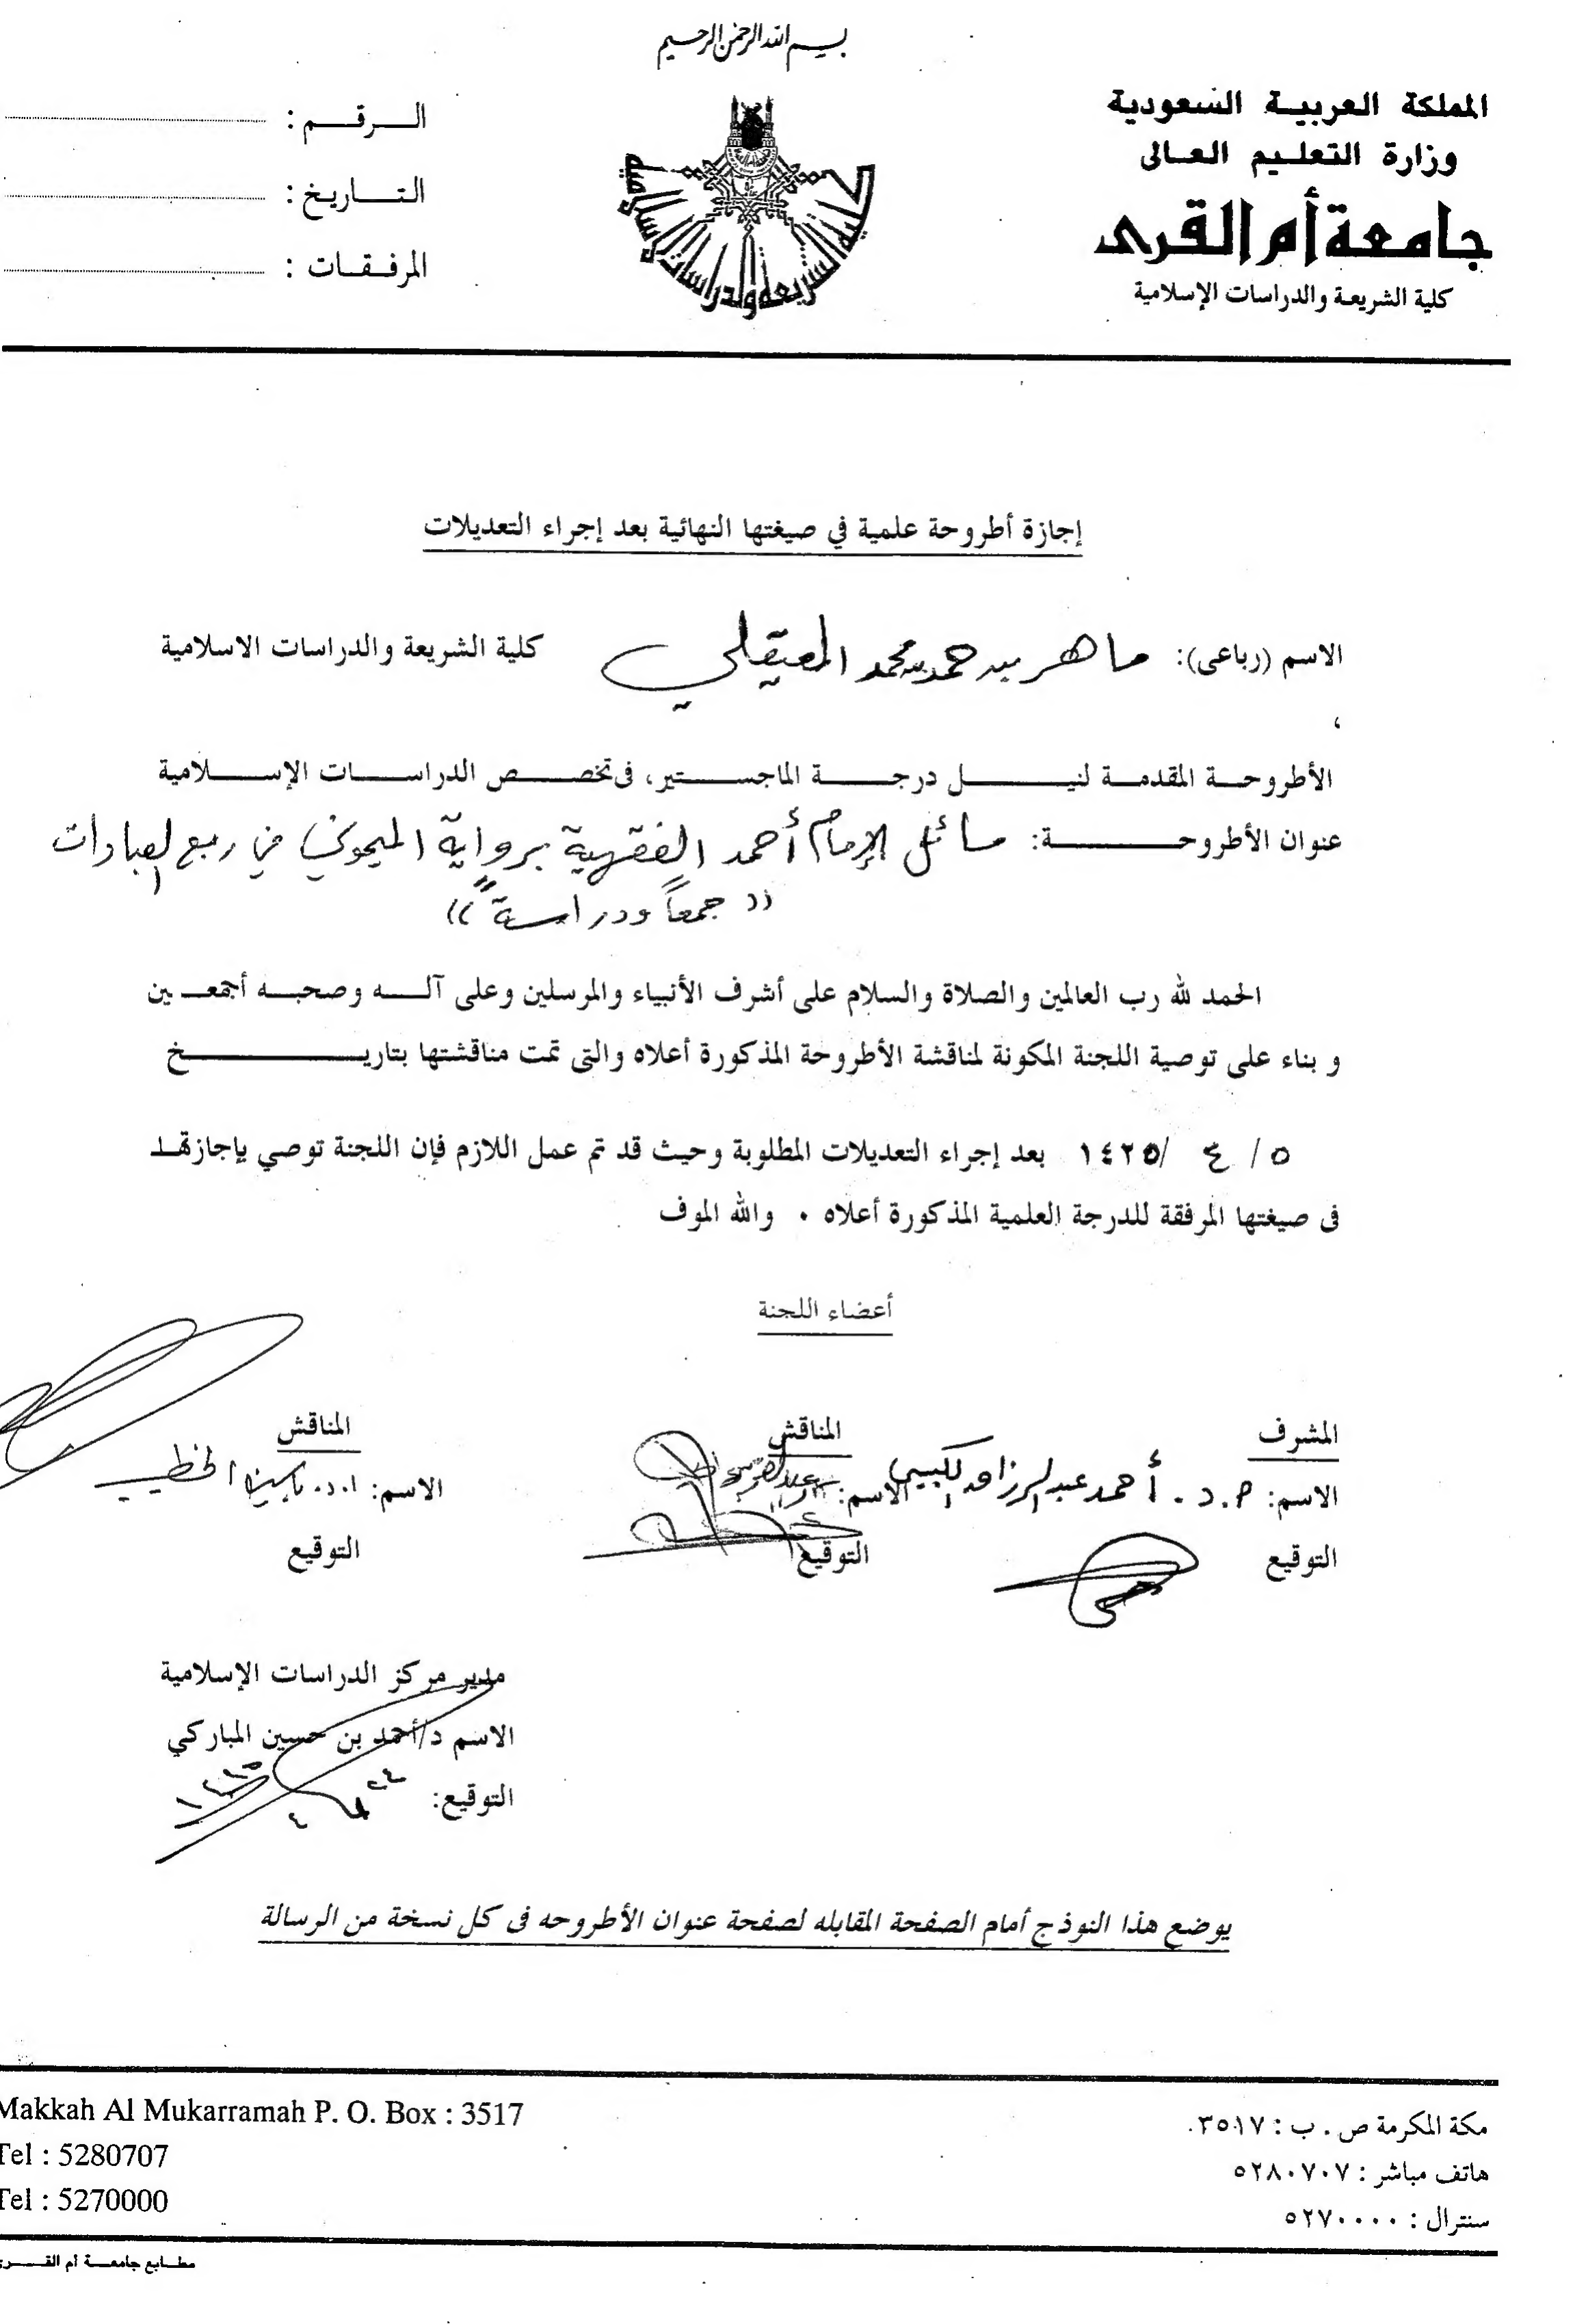 بسم الله الرحمن الرحيم
المملكة العربية السعودية
وزارة التعليم العالى
جامعة أم القرى
كلية الشريعة والدراسات الإسلامية
الرقم :
التاريخ :
المرفقات :
إجازة أطروحة علمية في صيغتها النهائية بعد إجراء التعديلات
الاسم (رباعى): ماهر بن حمد بن محمد المعيقلي كلية الشريعة والدراسات الاسلامية
،
الأطروحة المقدمة لنيل درجة الماجستير، فى تخصص الدراسات الإسلامية
عنوان الأطروحة: مسائل الإمام أحمد الفقهية برواية الميموني في ربع العبادات
(( جمعاً ودراسة ))
الحمد لله رب العالمين والصلاة والسلام على أشرف الأنبياء والمرسلين وعلى آله وصحبه أجمعين
و بناء على توصية اللجنة المكونة لمناقشة الأطروحة المذكورة أعلاه والتى تمت مناقشتها بتاريخ
٥ / ٤ /١٤٢٥ بعد إجراء التعديلات المطلوبة وحيث قد تم عمل اللازم فإن اللجنة توصي بإجازتها
فى صيغتها المرفقة للدرجة العلمية المذكورة أعلاه . والله الموف
أعضاء اللجنة
المشرف المناقش المناقش
الاسم: أ.د. أحمد عبد الرزاق الكبيسي الاسم: الاسم: ا.د. ياسين الخطيب
التوقيع التوقيع التوقيع
مدير مركز الدراسات الإسلامية
الاسم د/أحمد بن حسين المباركي
التوقيع: ٢٤ ٤ ١٤٢٥
يوضع هذا النوذج أمام الصفحة المقابله لصفحة عنوان الأطروحه فى كل نسخة من الرسالة
مكة المكرمة ص . ب : ٣٥١٧.
هاتف مباشر : ٥٢٨٠٧٠٧
سنترال : ٥٢٧٠٠٠٠
Makkah Al Mukarramah P. O. Box : 3517
Tel : 5280707
Tel : 5270000
مطابع جامعة أم القرى